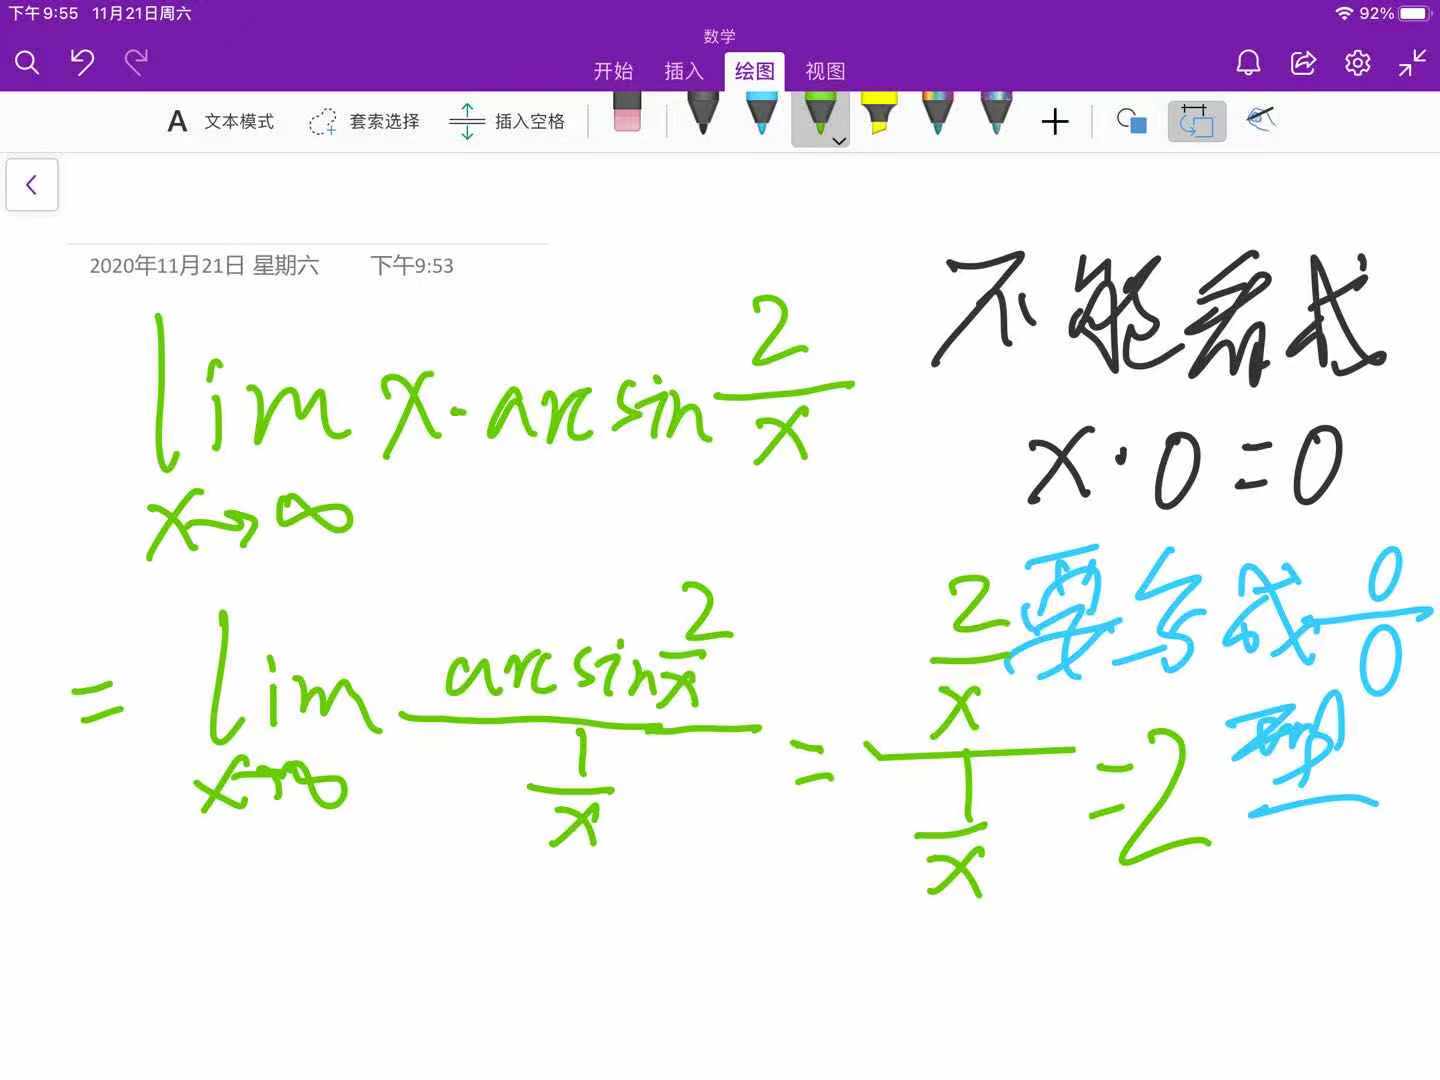 下午9:55 11月21日周六 92%
数学
开始 插入 绘图 视图
A 文本模式 套索选择 插入空格
2020年11月21日 星期六 下午9:53
lim x→∞ x·arcsin 2/x
= lim x→∞ (arcsin 2/x)/(1/x) = (2/x)/(1/x) = 2
不能看成
x·0=0
要写成 0/0
型